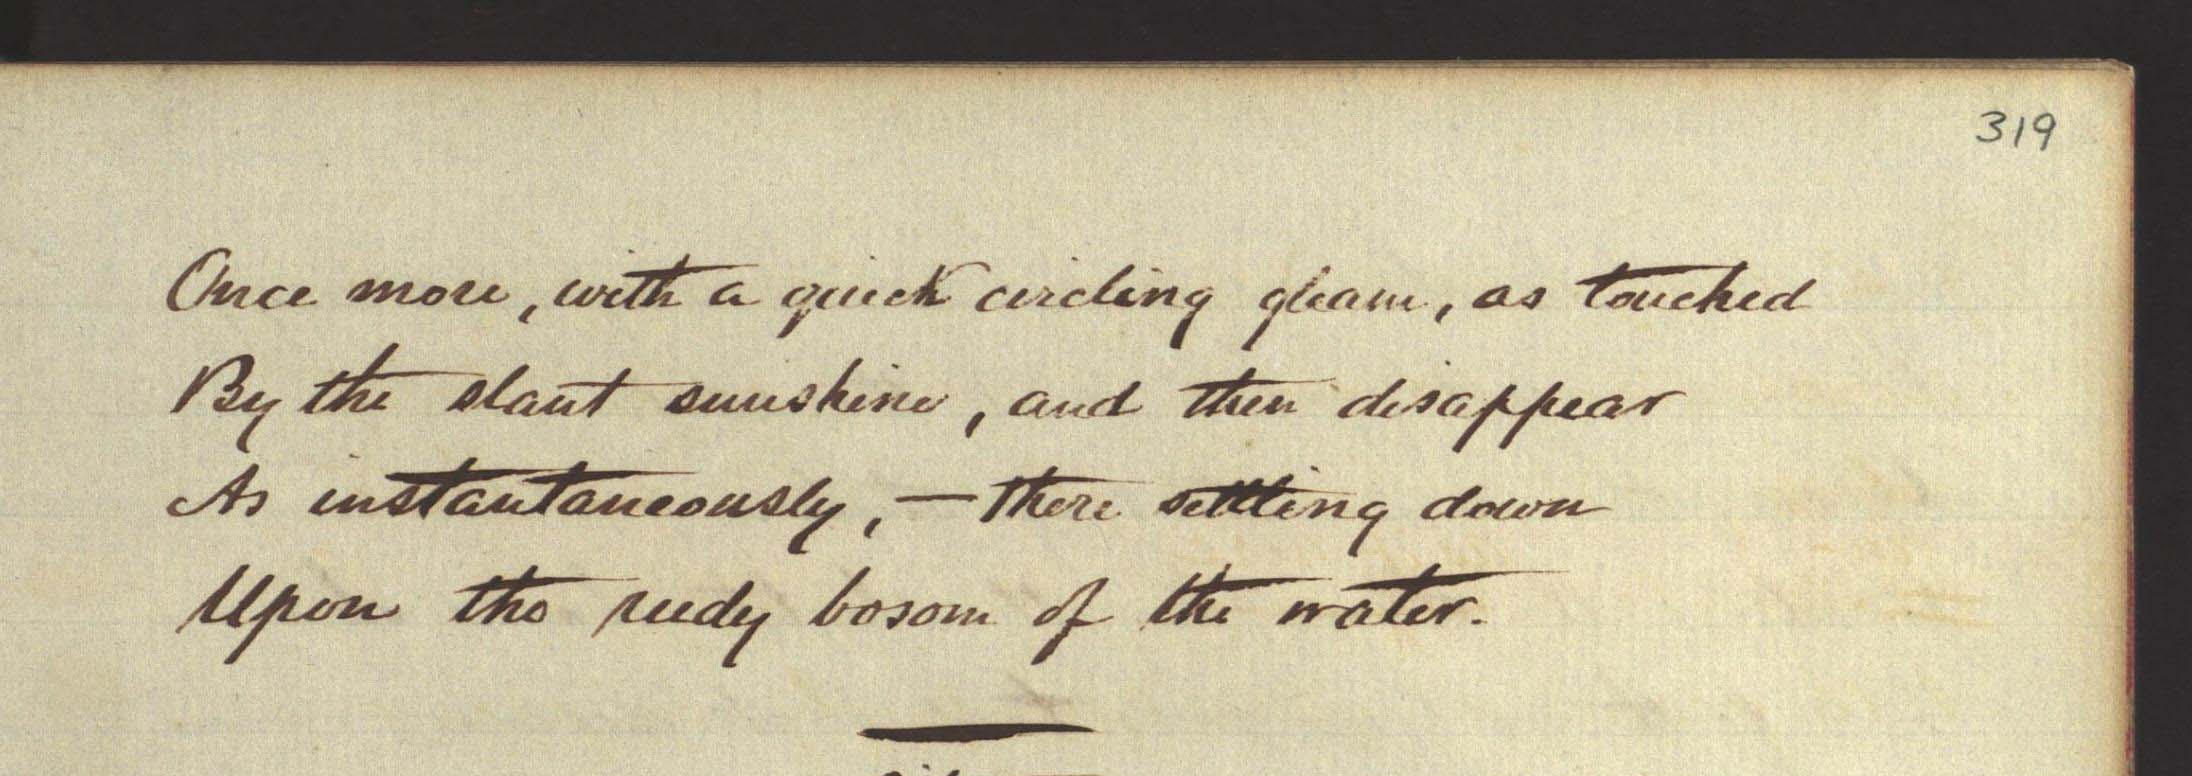 319
Once more, with a quick circling gleam, as touched
By the slant sunshine, and then disappear
As instantaneously, — there settling down
Upon the reedy bosom of the water.